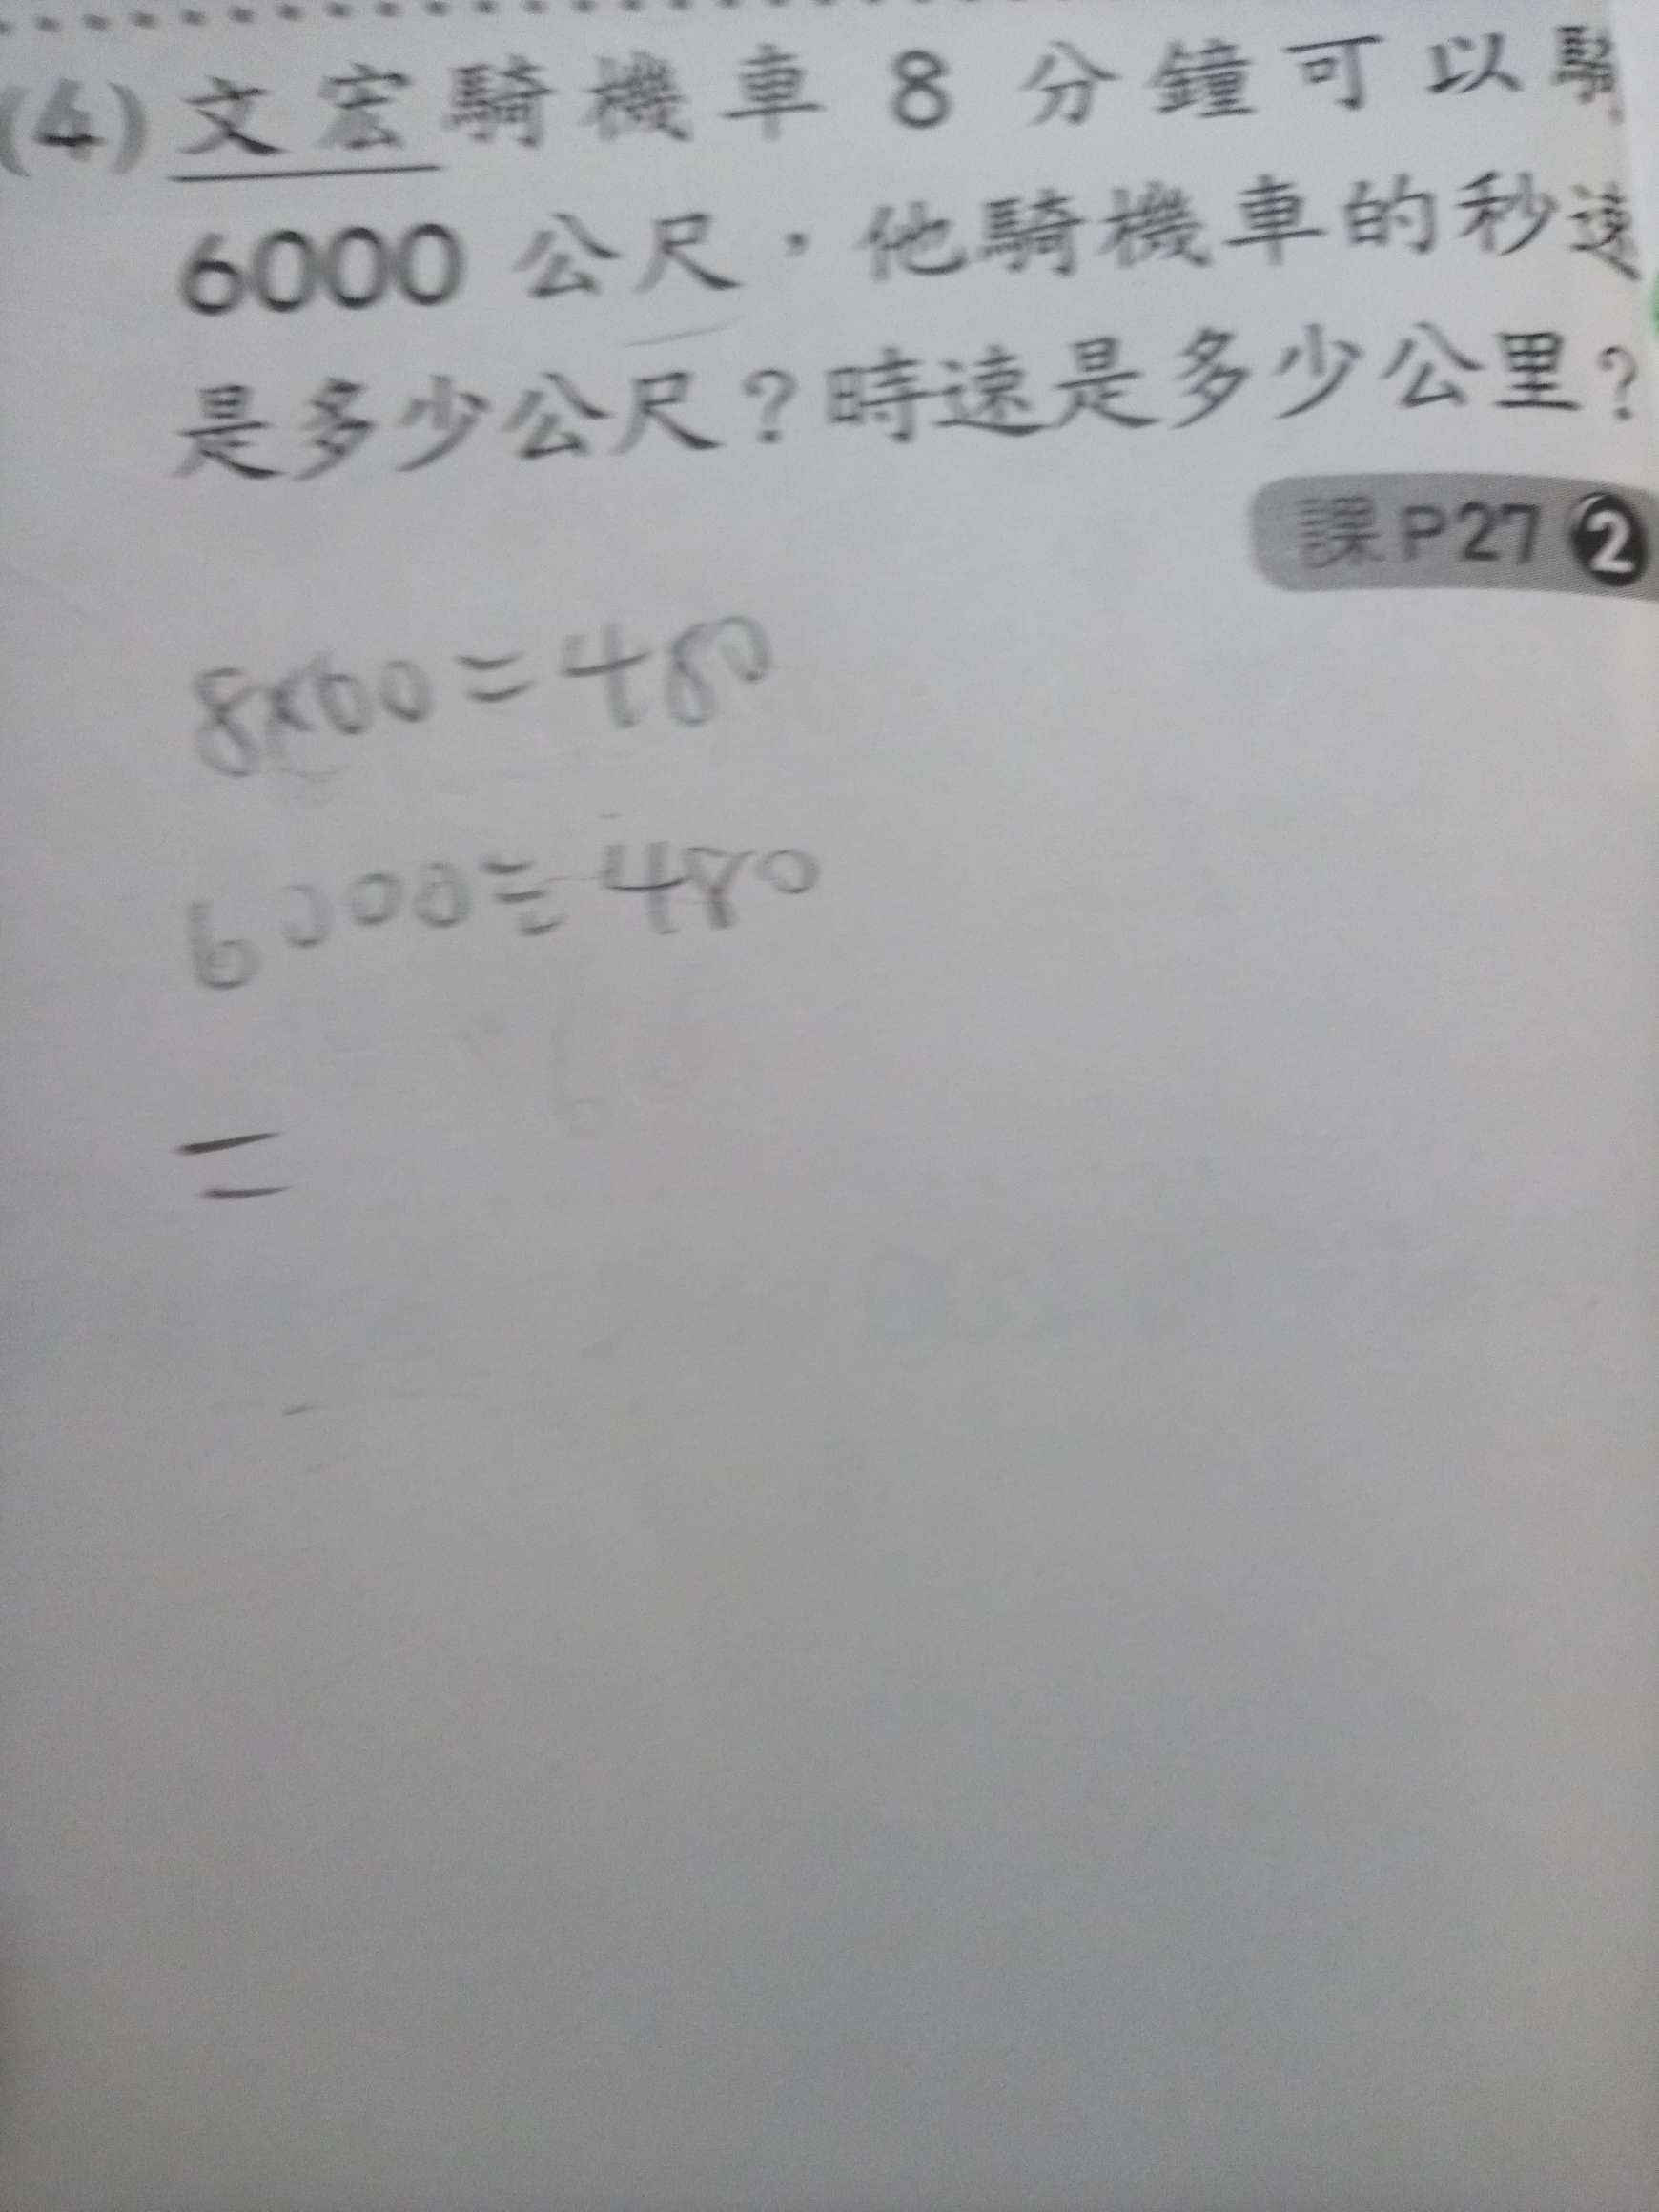 (4) 文宏騎機車 8 分鐘可以騎
6000 公尺，他騎機車的秒速
是多少公尺？時速是多少公里？
課P27 2
8×60=480
6000÷480
=